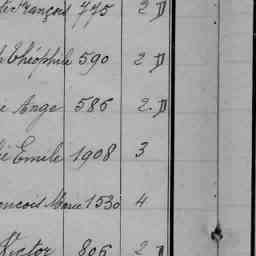 François 775 2 D
Théophile 590 2 D
Ange 586 2. D
Emile 1908 3
François Marie 1530 4
Victor 806 2 D